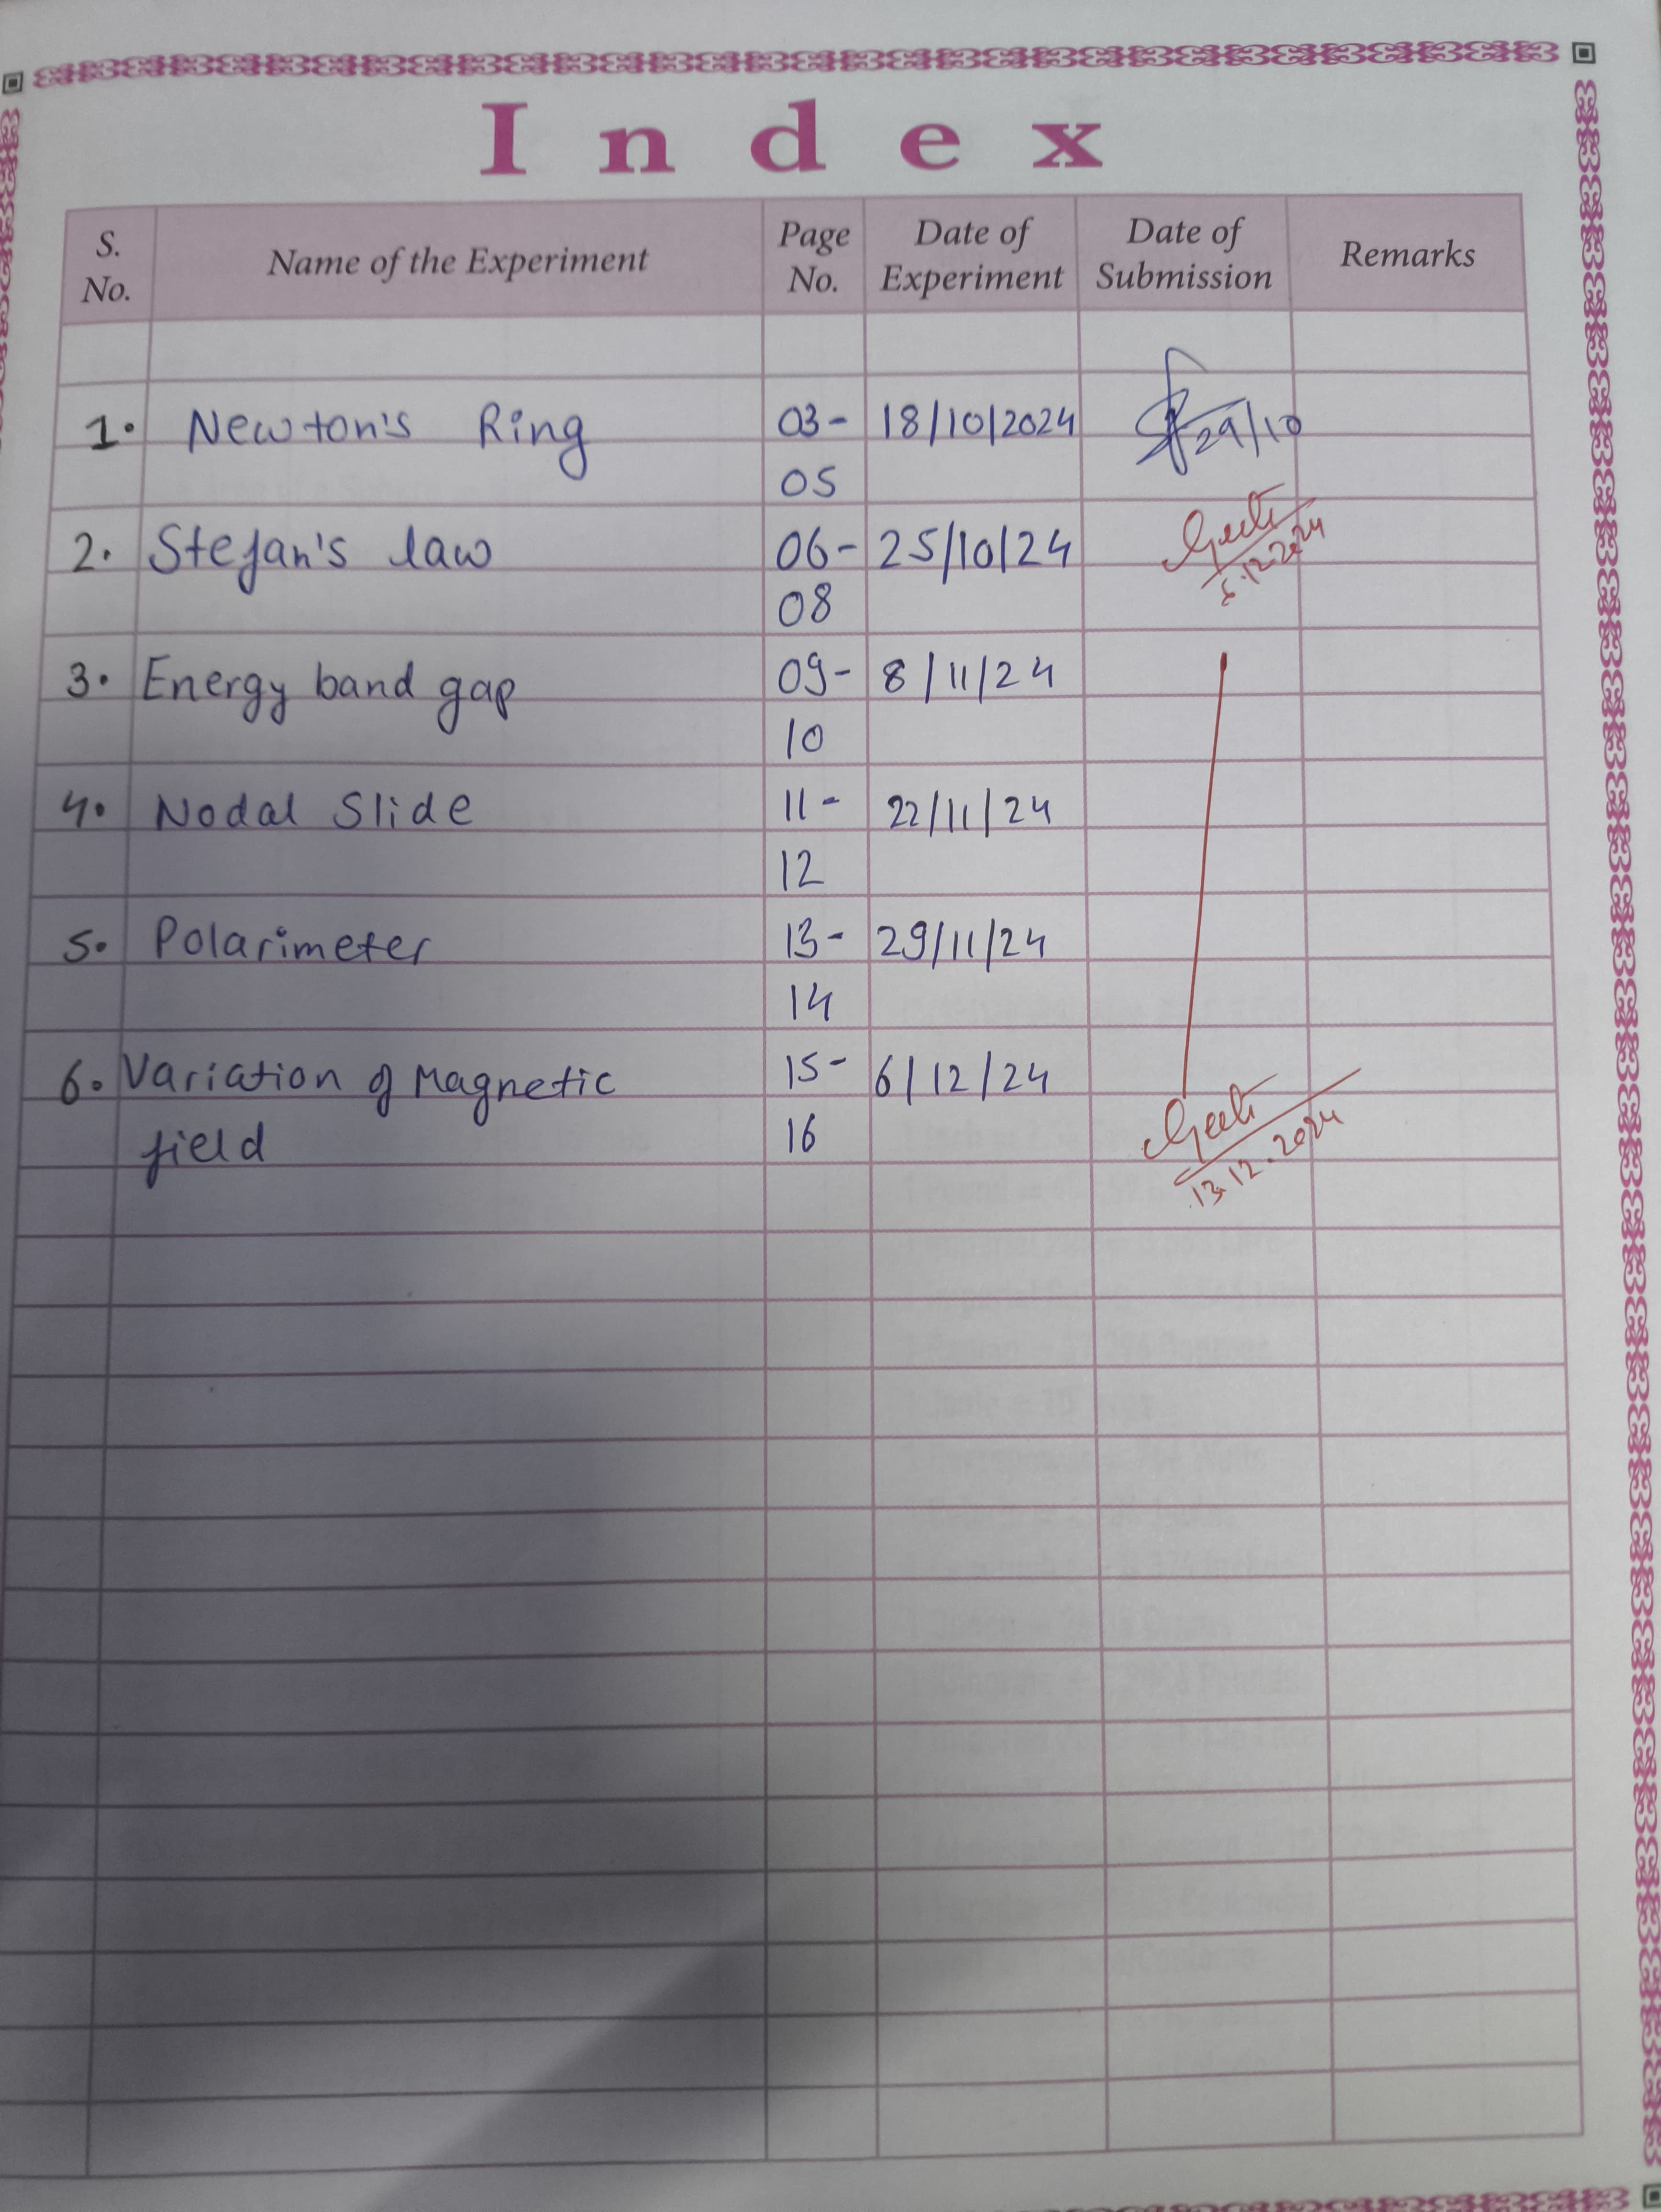 Index
S. No. Name of the Experiment Page No. Date of Experiment Date of Submission Remarks
1. Newton's Ring 03- 18/10/2024 29/10
05
2. Stefan's law 06- 25/10/24 Geeti
08 .12.2024
3. Energy band gap 09- 8/11/24
10
4. Nodal Slide 11- 22/11/24
12
5. Polarimeter 13- 29/11/24
14
6. Variation of Magnetic 15- 6/12/24
field 16 Geeti
13.12.2024